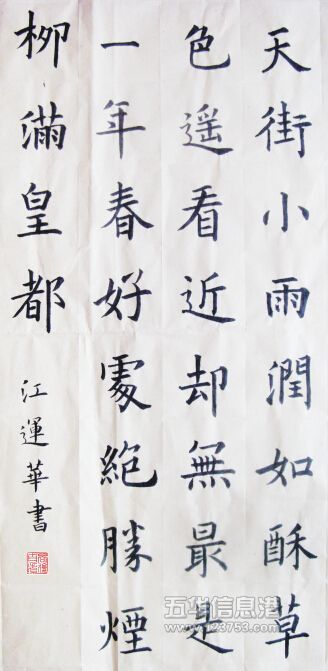 天街小雨潤如酥草
色遥看近却無最是
一年春好處絶勝煙
柳滿皇都
江運華書
五华信息港
www.123753.com